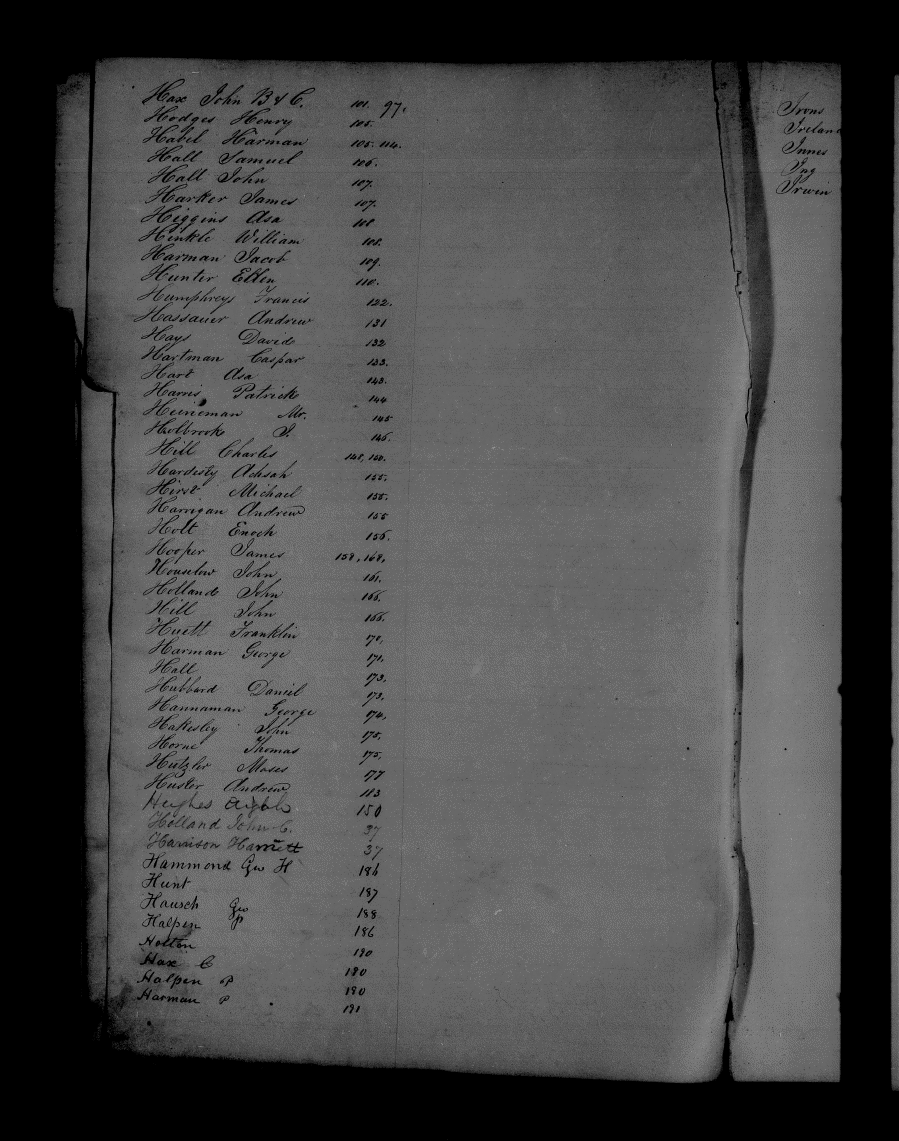 Hax John B & C. 101. 97.
Hodges Henry 105.
Habel Harman 105. 114.
Hall Samuel 106.
Hall John 107.
Harker James 107.
Higgins Asa 108
Hinkle William 108.
Harman Jacob 109.
Hunter Ellen 110.
Humphreys Francis 122.
Hassauer Andrew 131
Hays David 132
Hartman Caspar 133.
Hart Asa 143.
Harris Patrick 144
Heineman Mr. 145
Holbrooke J. 146.
Hill Charles 148, 150.
Hardesty Achsah 155.
Hirst Michael 155.
Harrigan Andrew 155
Holt Enoch 156.
Hooper James 158, 168,
Houselow John 161.
Holland John 166.
Hill John 166.
Huett Franklin 170,
Harman George 171,
Hall 173.
Hubbard Daniel 173,
Hannaman George 174,
Hakesley John 175,
Horne Thomas 175,
Hutzler Moses 177
Huster Andrew 113
Heighes 150
Holland John C. 37
Harrison Harriett 37
Hammond Geo H 186
Hunt 187
Hausch Geo 188
Halpen P 186
Holton 190
Hax C 190
Halpen P 190
Harman P 191
Irons
Ireland
Innes
Ing
Irwin